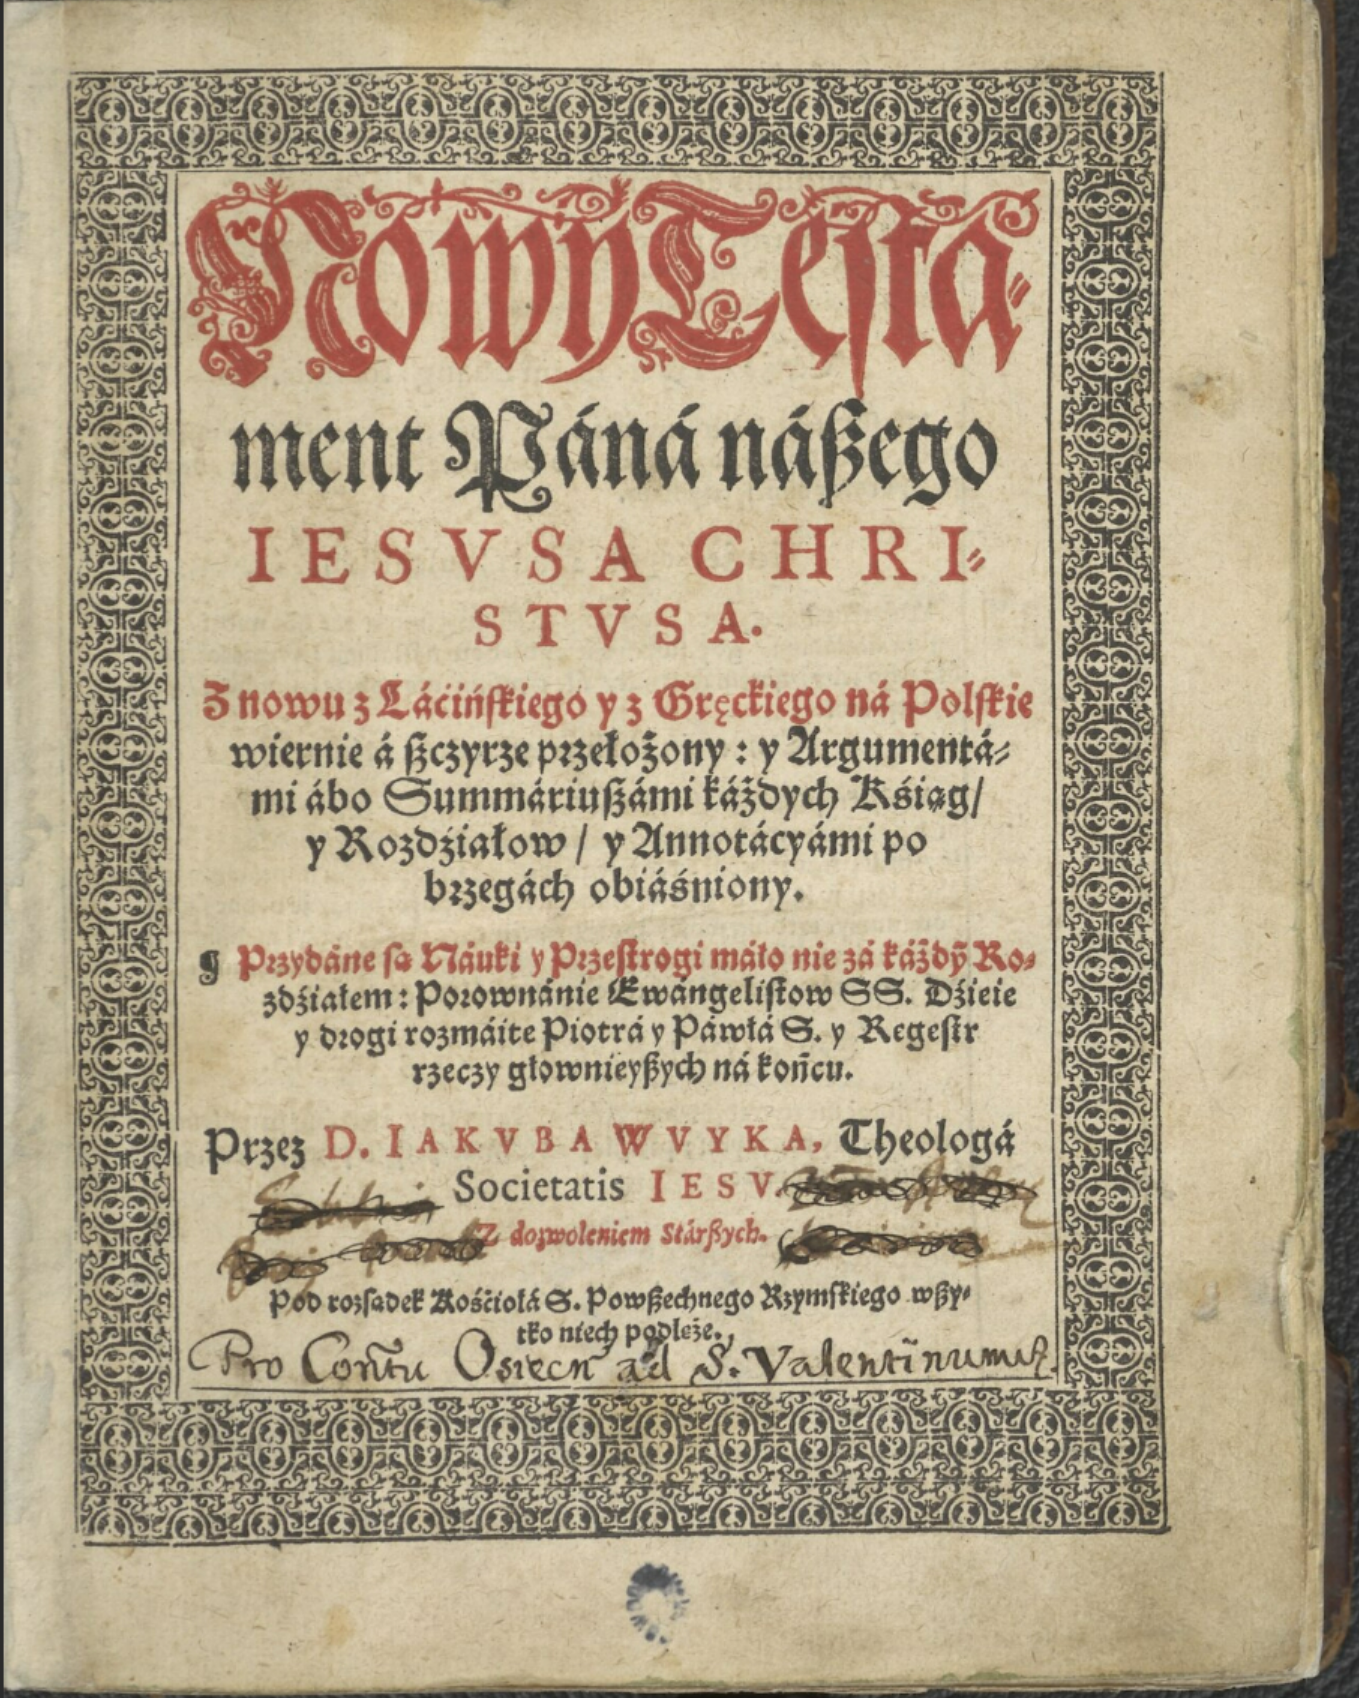 Nowy Testá⸗
ment Páná nászego
IESVSA CHRI⸗
STVSA.
Z nowu z Láćińskiego y z Gręckiego ná Polskie
wiernie á szczyrze przełożony : y Argumentá⸗
mi ábo Summáriuszámi káżdych Kśiąg/
y Rozdźiałow / y Annotácyámi po
brzegách obiáśniony.
Przydáne są Náuki y Przestrogi máło nie zá káżdy̅ Ro⸗
zdźiałem : Porownánie Ewángelistow SS. Dźieie
y drogi rozmáite Piotrá y Páwłá S. y Regestr
rzeczy głownieyszych ná końcu.
Przez D. IAKVBA WVYKA, Theologá
Societatis IESV.
Z dozwoleniem Stárszych.
Pod rozsądek Kośćiołá S. Powszechnego Rzymskiego wszy⸗
tko niech podleże.
Pro Conũtu Osiecn̄ ad S. Valentīnum